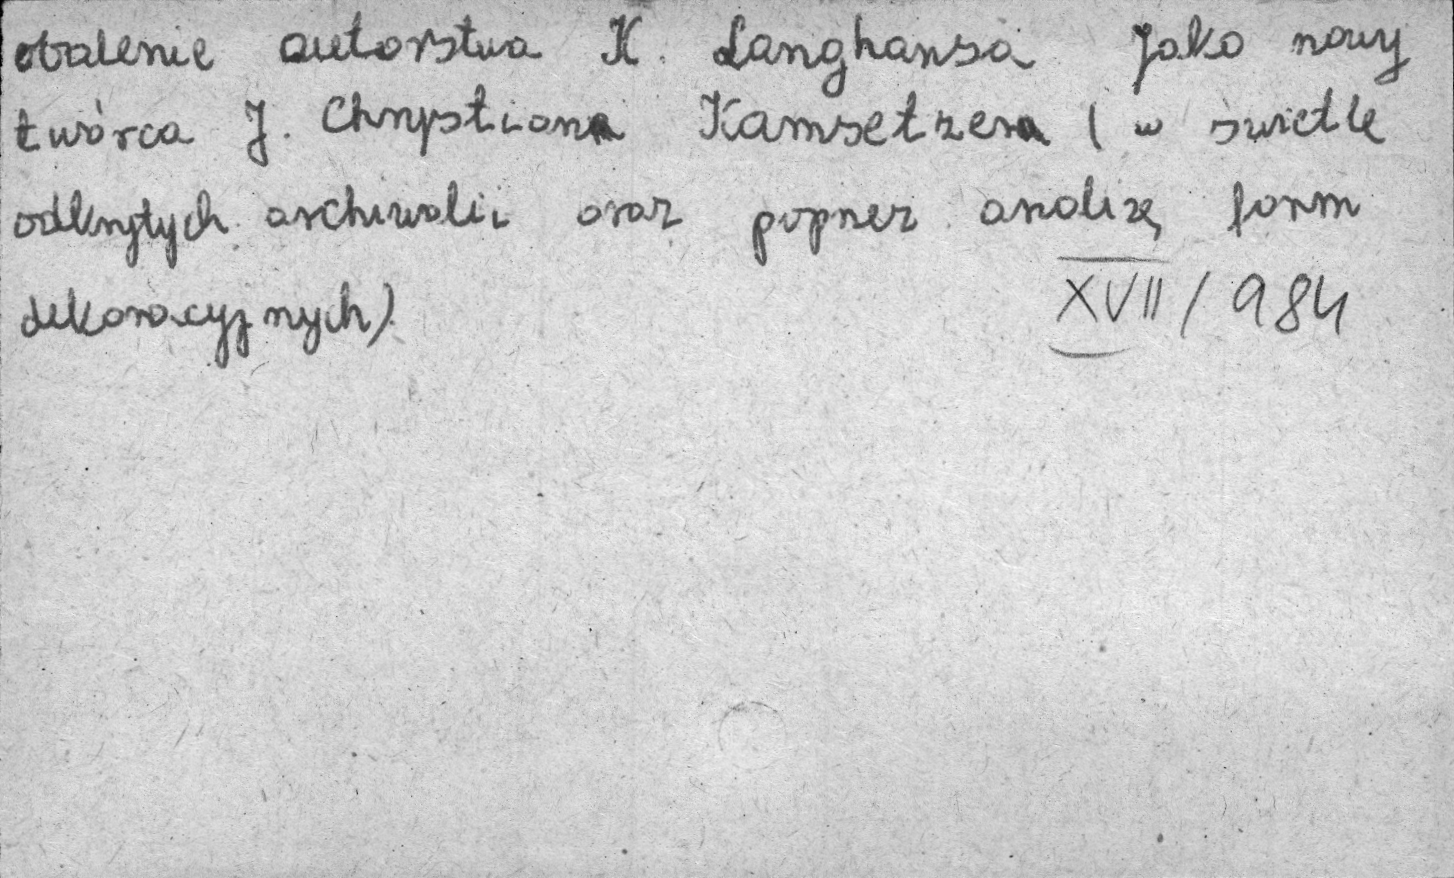 obalenie autorstwa K. Langhansa Jako nowy
twórca J. Chrystiana Kamsetzera ( w świetle
odkrytych archiwalii oraz poprzez analizę form
dekoracyjnych).
XVII / 984